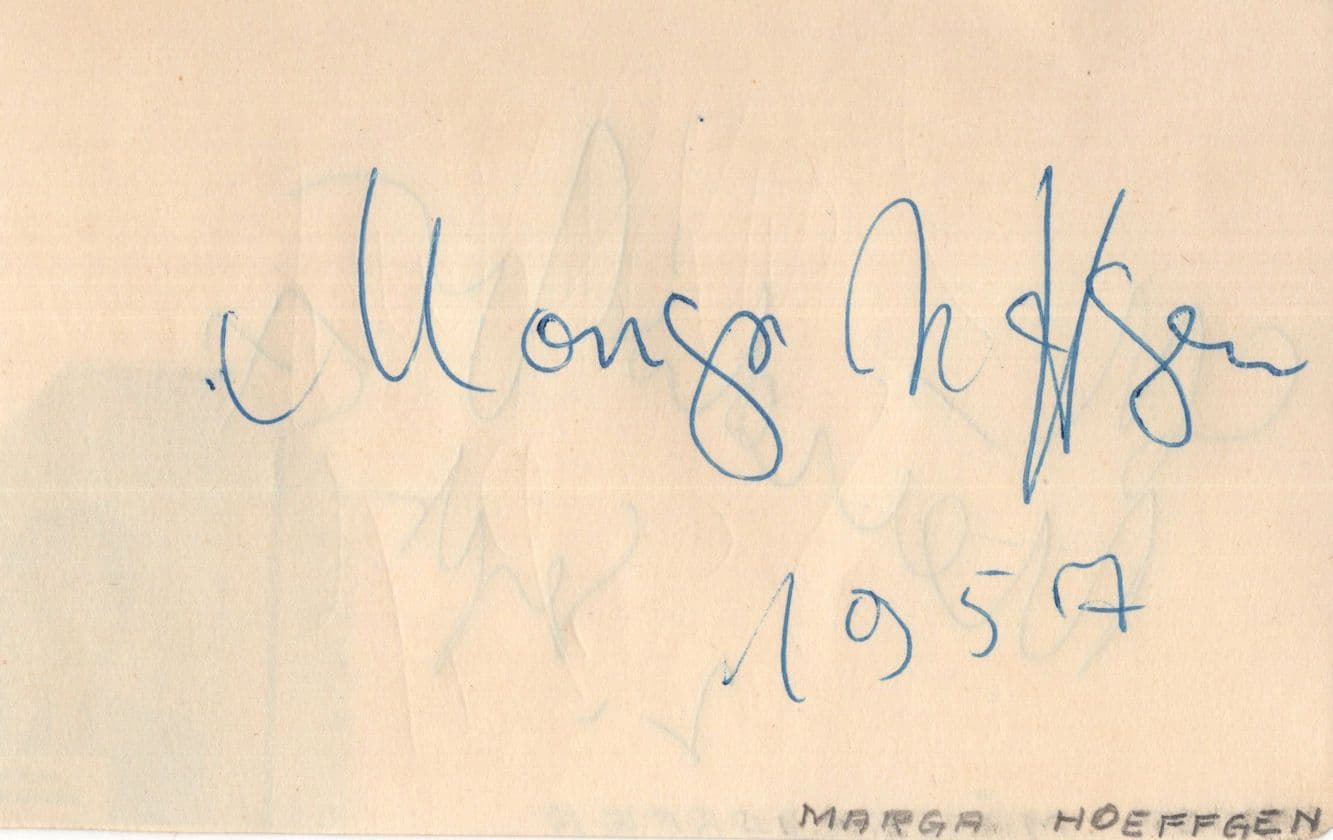 Marga Höffgen
1957
MARGA HOEFFGEN